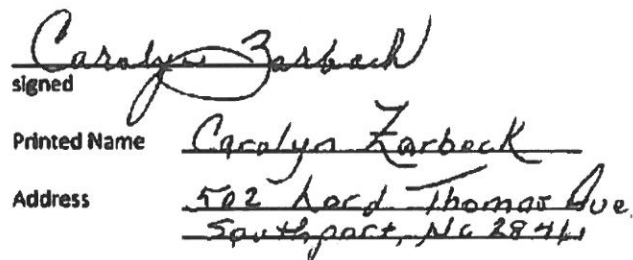 Carolyn Zarbock
signed
Printed Name Carolyn Zarbock
Address 502 Lord Thomas Ave.
Southport, NC 28461